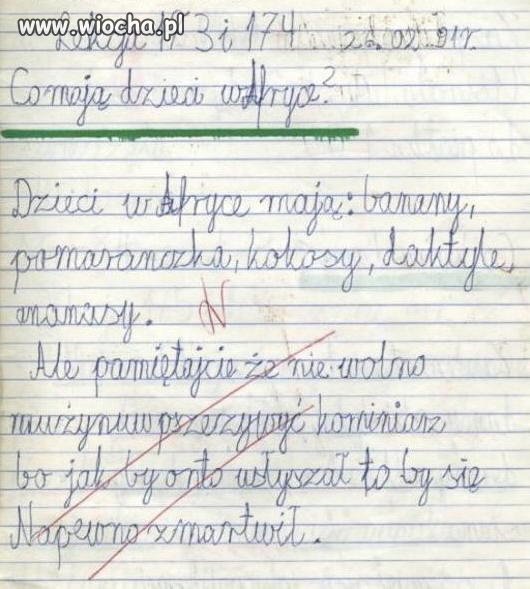 www.wiocha.pl
Lekcja 173 i 174 26.02.91r.
Co mają dzieci w Afryce?
Dzieci w Afryce mają: banany,
pomaranczka, kokosy, daktyle,
ananasy. N
Ale pamiętajcie że nie wolno
mużynuw pszezywyć kominiarz
bo jak by onto usłyszał to by się
Napewno zmartwił.